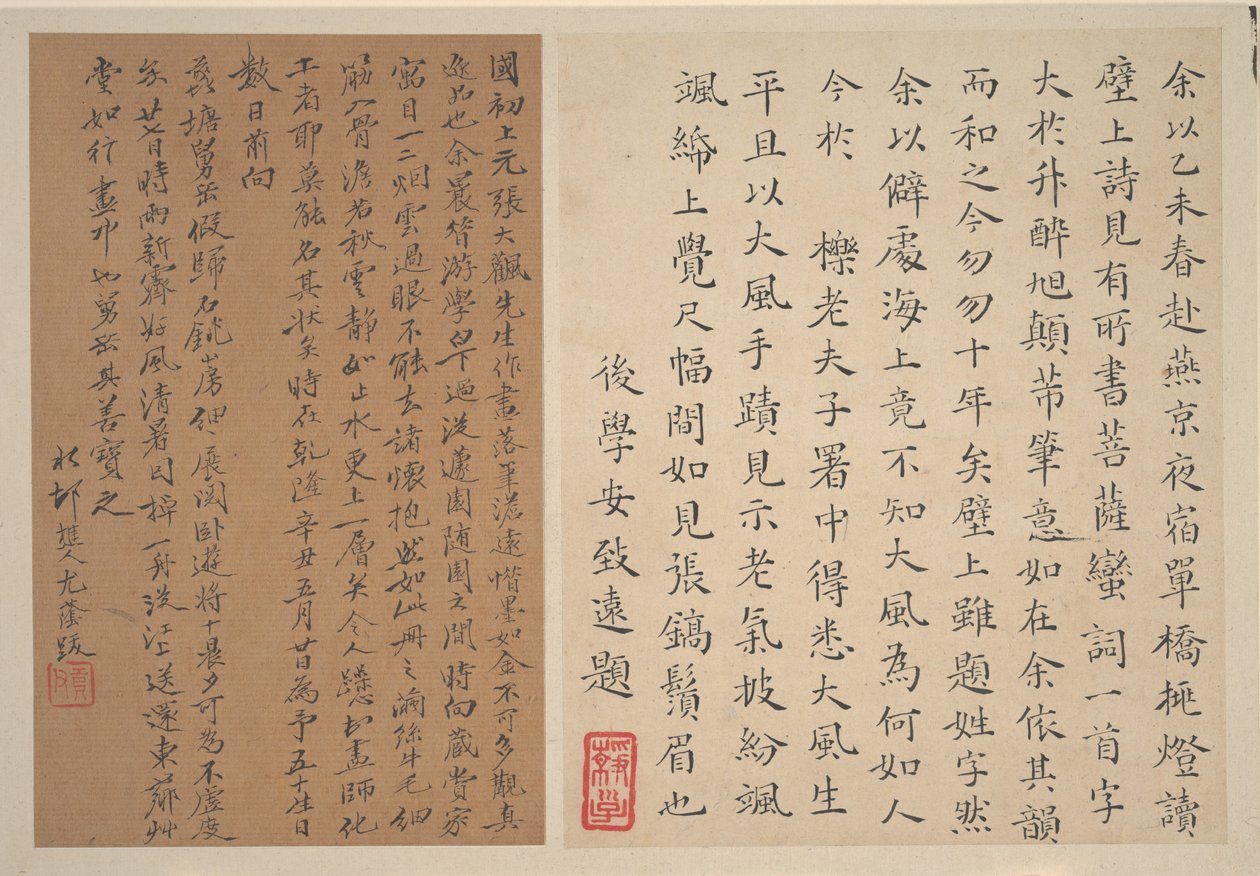 余以乙未春赴燕京夜宿單橋挑燈讀
壁上詩見有所書菩薩蠻詞一首字
大於升酔旭顛芾筆意如在余依其韻
而和之今勿勿十年矣壁上雖題姓字然
余以僻處海上竟不知大風為何如人
今於 櫟老夫子署中得悉大風生
平且以大風手蹟見示老氣披紛颯
颯綈上覺尺幅間如見張鎬鬚眉也
後學安致遠題
國初上元張大風先生作畫落筆澹遠惜墨如金不可多覯真
逸品也余曩昔游學白下過從邃園随園之間時向藏賞家
寓目一二烟雲過眼不能去諸懷抱然如此冊之繭絲牛毛細
筋入骨澹若秋雲静如止水更上一層矣令人疑畫師化
工者耶莫能名其狀矣時在乾隆辛丑五月廿日為予五十生日
數日前向
舅岳假歸石銚山房細細展閱卧遊將十晨夕可為不虛度
矣廿七日時雨新霽好風清暑因掉一舟從江上送還東
堂如行畫中也舅岳其善寶之
水邨樵人尤蔭跋